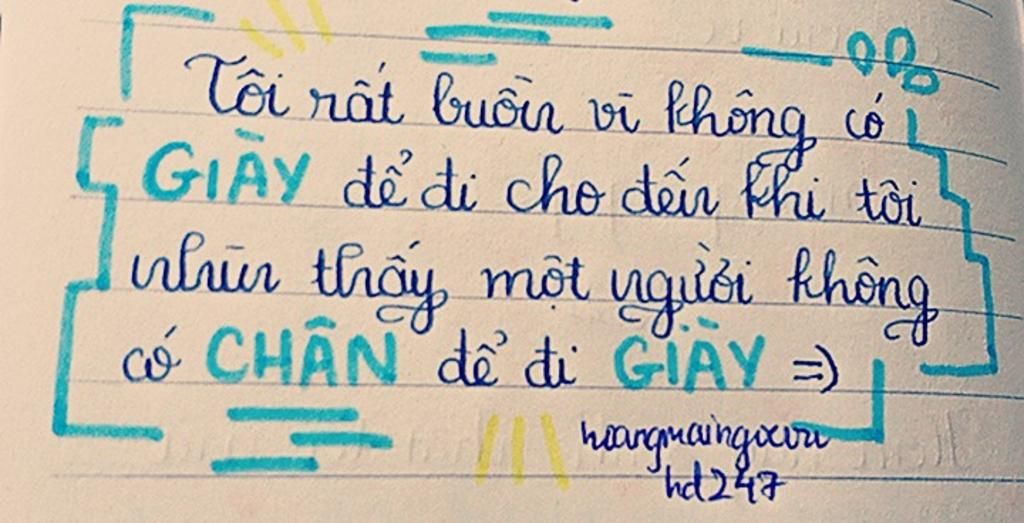 Tôi rất buồn vì không có
GIÀY để đi cho đến khi tôi
nhìn thấy một người không
có CHÂN để đi GIÀY =)
hoangmaingocvu
hd247